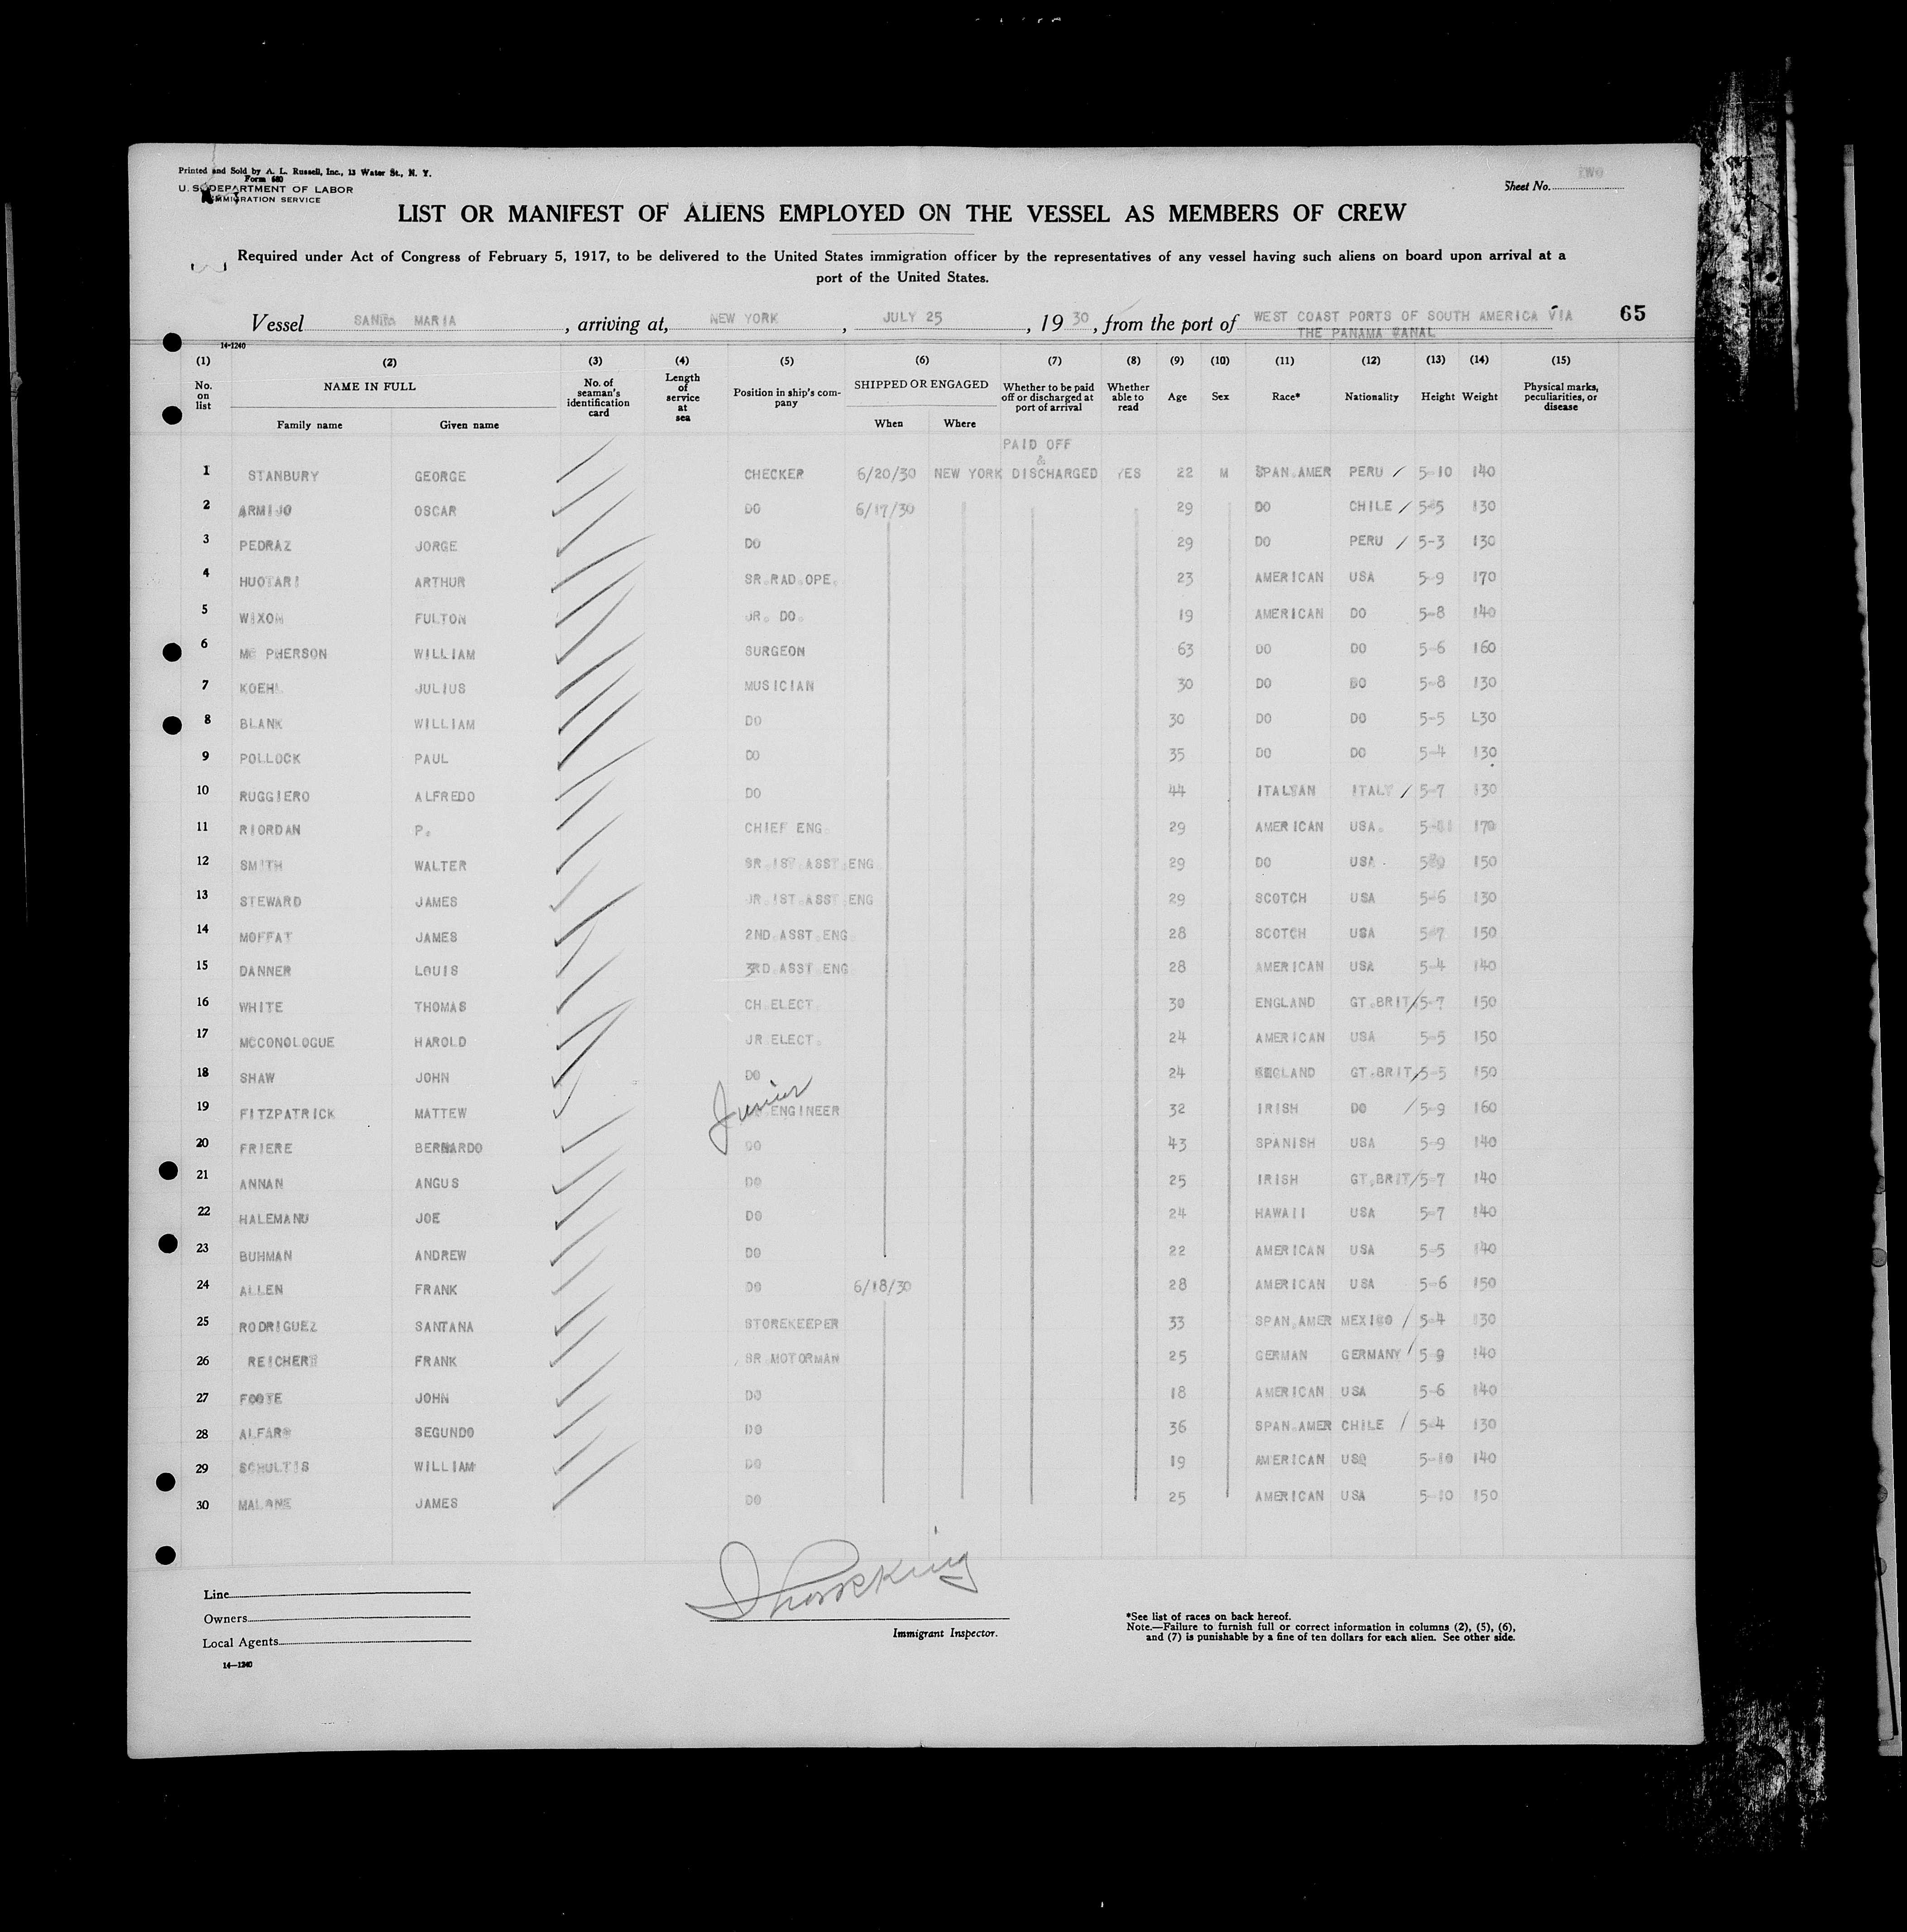 Printed and Sold by A. L. Russell, Inc., 13 Water St., N. Y.
Form 680
U. S. DEPARTMENT OF LABOR
IMMIGRATION SERVICE
Sheet No. TWO
LIST OR MANIFEST OF ALIENS EMPLOYED ON THE VESSEL AS MEMBERS OF CREW
Required under Act of Congress of February 5, 1917, to be delivered to the United States immigration officer by the representatives of any vessel having such aliens on board upon arrival at a
port of the United States.
Vessel SANTA MARIA, arriving at, NEW YORK, JULY 25, 1930, from the port of WEST COAST PORTS OF SOUTH AMERICA VIA THE PANAMA CANAL
65
14-1240
(1) (2) (3) (4) (5) (6) (7) (8) (9) (10) (11) (12) (13) (14) (15)
No. on list NAME IN FULL No. of seaman's identification card Length of service at sea Position in ship's company SHIPPED OR ENGAGED Whether to be paid off or discharged at port of arrival Whether able to read Age Sex Race* Nationality Height Weight Physical marks, peculiarities, or disease
Family name Given name When Where
PAID OFF
&
1 STANBURY GEORGE CHECKER 6/20/30 NEW YORK DISCHARGED YES 22 M SPAN.AMER PERU / 5-10 140
2 ARMIJO OSCAR DO 6/17/30 29 DO CHILE / 5-5 130
3 PEDRAZ JORGE DO 29 DO PERU / 5-3 130
4 HUOTARI ARTHUR SR.RAD.OPE. 23 AMERICAN USA 5-9 170
5 WIXOM FULTON JR. DO. 19 AMERICAN DO 5-8 140
6 MC PHERSON WILLIAM SURGEON 63 DO DO 5-6 160
7 KOEHL JULIUS MUSICIAN 30 DO DO 5-8 130
8 BLANK WILLIAM DO 30 DO DO 5-5 L30
9 POLLOCK PAUL DO 35 DO DO 5-4 130
10 RUGGIERO ALFREDO DO 44 ITALYAN ITALY / 5-7 130
11 RIORDAN P. CHIEF ENG. 29 AMERICAN USA. 170
12 SMITH WALTER SR.1ST.ASST.ENG 29 DO USA. 150
13 STEWARD JAMES JR.1ST.ASST.ENG 29 SCOTCH USA 5-6 130
14 MOFFAT JAMES 2ND.ASST.ENG. 28 SCOTCH USA 5-7 150
15 DANNER LOUIS 3RD.ASST.ENG. 28 AMERICAN USA 5-4 140
16 WHITE THOMAS CH.ELECT. 30 ENGLAND GT.BRIT/ 5-7 150
17 MCCONOLOGUE HAROLD JR.ELECT. 24 AMERICAN USA 5-5 150
18 SHAW JOHN DO 24 ENGLAND GT.BRIT/ 5-5 150
19 FITZPATRICK MATTEW Junior ENGINEER 32 IRISH DO / 5-9 160
20 FRIERE BERNARDO DO 43 SPANISH USA 5-9 140
21 ANNAN ANGUS DO 25 IRISH GT.BRIT/ 5-7 140
22 HALEMANU JOE DO 24 HAWAII USA 5-7 140
23 BUHMAN ANDREW DO 22 AMERICAN USA 5-5 140
24 ALLEN FRANK DO 6/18/30 28 AMERICAN USA 5-6 150
25 RODRIGUEZ SANTANA STOREKEEPER 33 SPAN.AMER MEXICO / 5-4 130
26 REICHERT FRANK SR.MOTORMAN 25 GERMAN GERMANY / 5-9 140
27 FOOTE JOHN DO 18 AMERICAN USA 5-6 140
28 ALFARO SEGUNDO DO 36 SPAN.AMER CHILE / 5-4 130
29 SCHULTIS WILLIAM DO 19 AMERICAN USQ 5-10 140
30 MALANE JAMES DO 25 AMERICAN USA 5-10 150
Line
Owners
Local Agents
14—1240
Immigrant Inspector.
*See list of races on back hereof.
Note.—Failure to furnish full or correct information in columns (2), (5), (6),
and (7) is punishable by a fine of ten dollars for each alien. See other side.